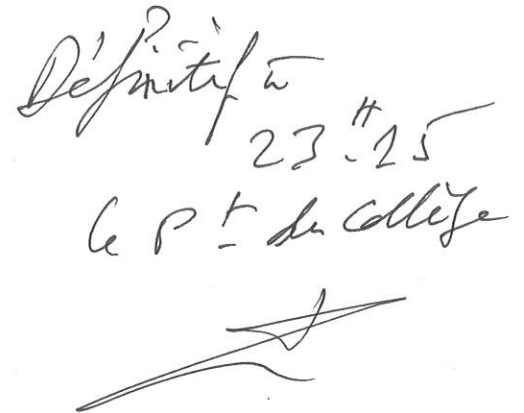 Définitif à
23H15
Le Pt du Collège